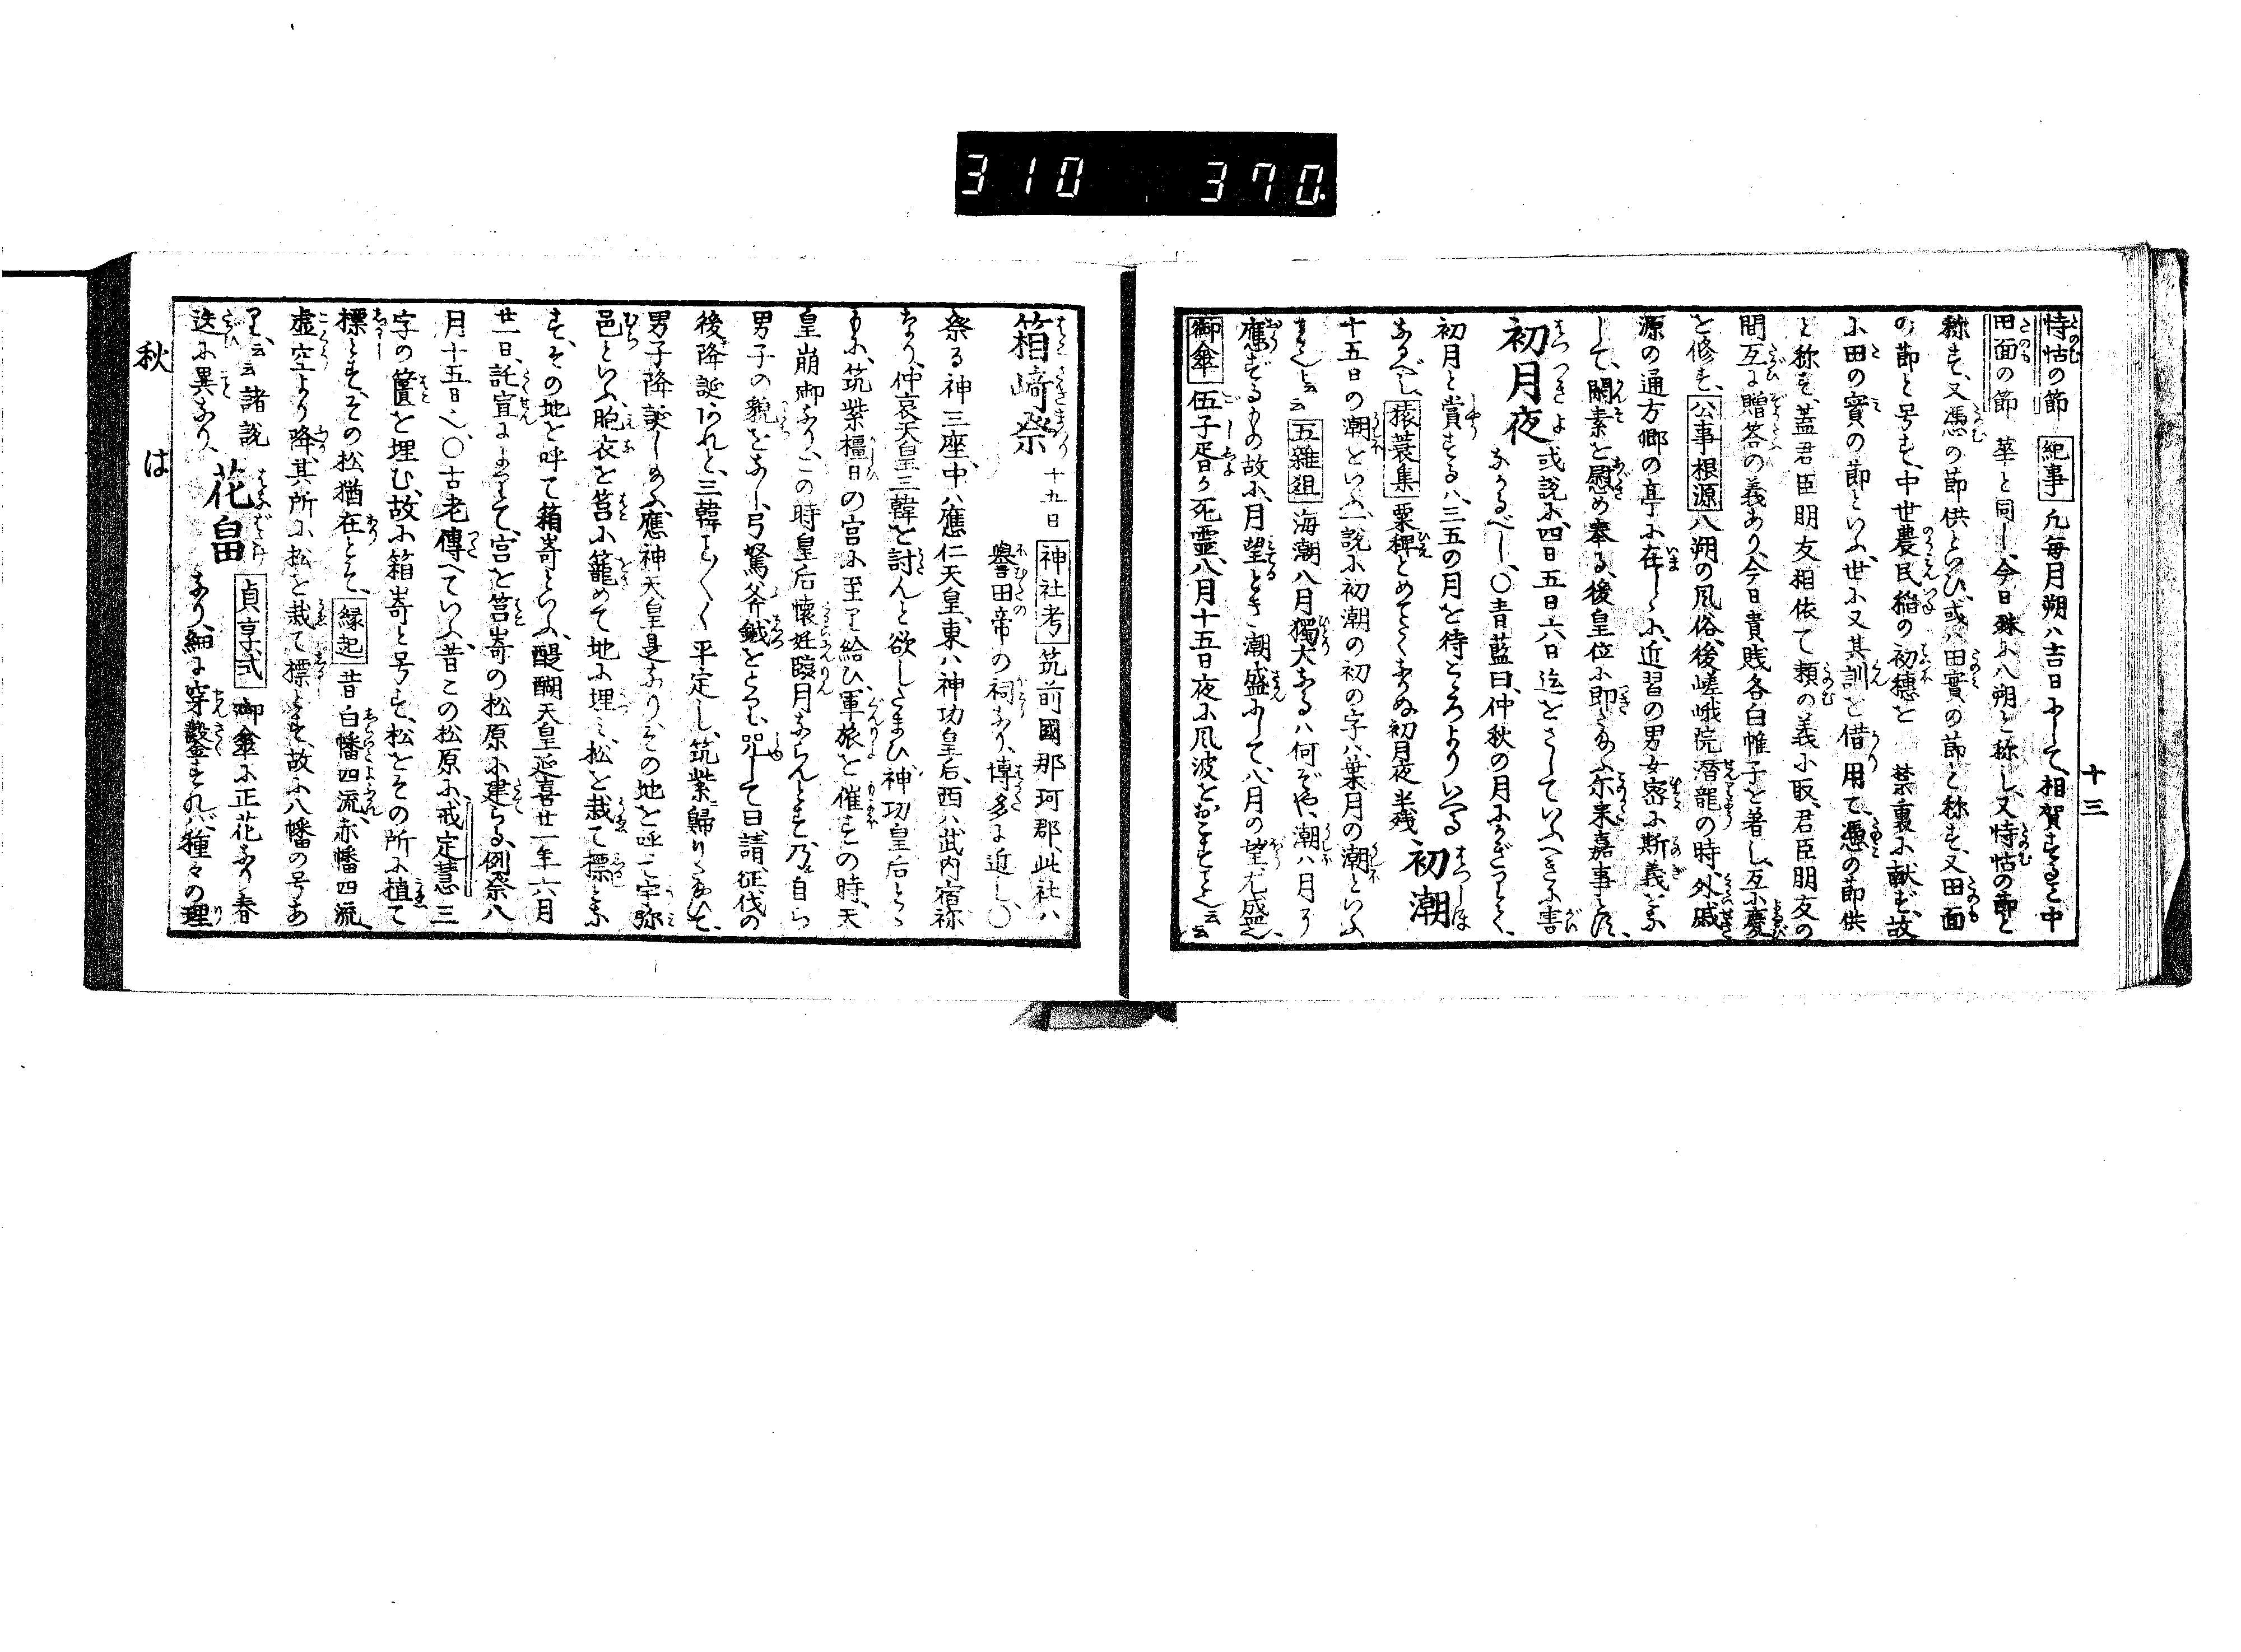 310 370
十三
恃怙の節 紀事 凡毎月朔ハ吉日にして、相賀するを中
田面の節 華と同し、今日殊に八朔と称し、又恃怙の節と
称す、又憑の節供といひ、或ハ田實の節と称す、又田面
の節と号す、中世農民稲の初穂を 禁裏に献ず、故
に田の實の節といふ、世に又其訓を借用て、憑の節供
と称す、蓋君臣朋友相依て頼の義に取、君臣朋友の
間互に贈答の義あり、今日貴賎各白帷子を着し、互に慶
を修す、公事根源 八朔の風俗、後嵯峨院潜龍の時、外戚
源の通方卿の亭に在しゝに、近習の男女密に斯義をな
して、閑素を慰め奉る、後皇位に即たまふ、尓来嘉事とす、
初月夜 或説に、四日五日六日迄をさしていふへきに害
なかるべし、〇青藍曰、仲秋の月にかぎつてく、
初月と賞するハ、三五の月を待ところよりいへる
あるべし、猿蓑集 粟稗とめてくまらぬ初月夜 半残 初潮
十五日の潮といふ、一説に初潮の初の字ハ、葉月の潮といふ
云云 五雜俎 海潮八月獨大なるハ何ぞや、潮ハ月に
應ずるもの故に、月望るとき潮盛にして、八月の望尤盛也、
御傘 伍子胥が死霊、八月十五日夜に風波をおこすと也云云
箱崎祭 十九日 神社考 筑前國那珂郡、此社ハ
譽田帝の祠なり、博多に近し、〇
祭る神三座、中ハ應仁天皇、東ハ神功皇后、西ハ武内宿祢
なり、仲哀天皇三韓を討んと欲したまひ、神功皇后とゝ
もに、筑紫橿日の宮に至り給ひ、軍旅を催すの時、天
皇崩御なり、この時皇后懷妊臨月ならんとす、乃自ら
男子の貌をなし、弓弩斧鉞をとらむ、咒して曰、請、征伐の
後降誕あれと、三韓ことごとく平定し、筑紫ニ歸りたまひて、
男子降誕しめふ、應神天皇是なり、その地を呼て宇弥
邑といふ、胞衣を筥に籠めて地に埋ミ、松を栽て標とな
す、その地を呼て箱崎といふ、醍醐天皇延喜廿一年六月
廿一日、託宣によつて、宮を筥嵜の松原に建らる、例祭八
月十五日也、〇古老傳へていふ、昔この松原に、戒定慧三
字の篋を埋む、故に箱嵜と号す、松をその所に植て
標とす、その松猶在とぞ、縁起 昔白幡四流、赤幡四流
虚空より降、其所に松を栽て標とす、故に八幡の号あ
り、云云 諸説 花畠 貞享式 御傘に正花なり、春
迭に異なり、 なり、細に穿鑿すれハ、種々の理
秋 は